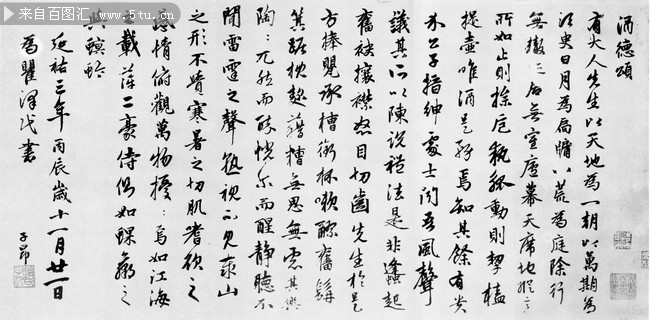 来自百图汇
www.5tu.cn
酒德頌
有大人先生以天地為一朝以萬期為
須臾日月為扃牖八荒為庭除行
無轍跡居無室廬幕天席地縱意
所如止則操卮執觚動則挈榼
提壺唯酒是務焉知其餘有貴
介公子搢紳處士聞吾風聲
議其所以陳說禮法是非蠭起
奮袂攘襟怒目切齒先生於是
方捧甖承槽銜杯漱醪奮髯
箕踞枕麴藉糟無思無慮其樂
陶:兀然而醉恍爾而醒靜聽不
聞雷霆之聲熟視不見泰山
之形不覺寒暑之切肌嗜欲之
感情俯觀萬物擾:焉如江海
之載萍二豪侍側如蜾蠃之
與螟蛉
延祐三年丙辰歲十一月廿一日
為瞿澤民書
子昂